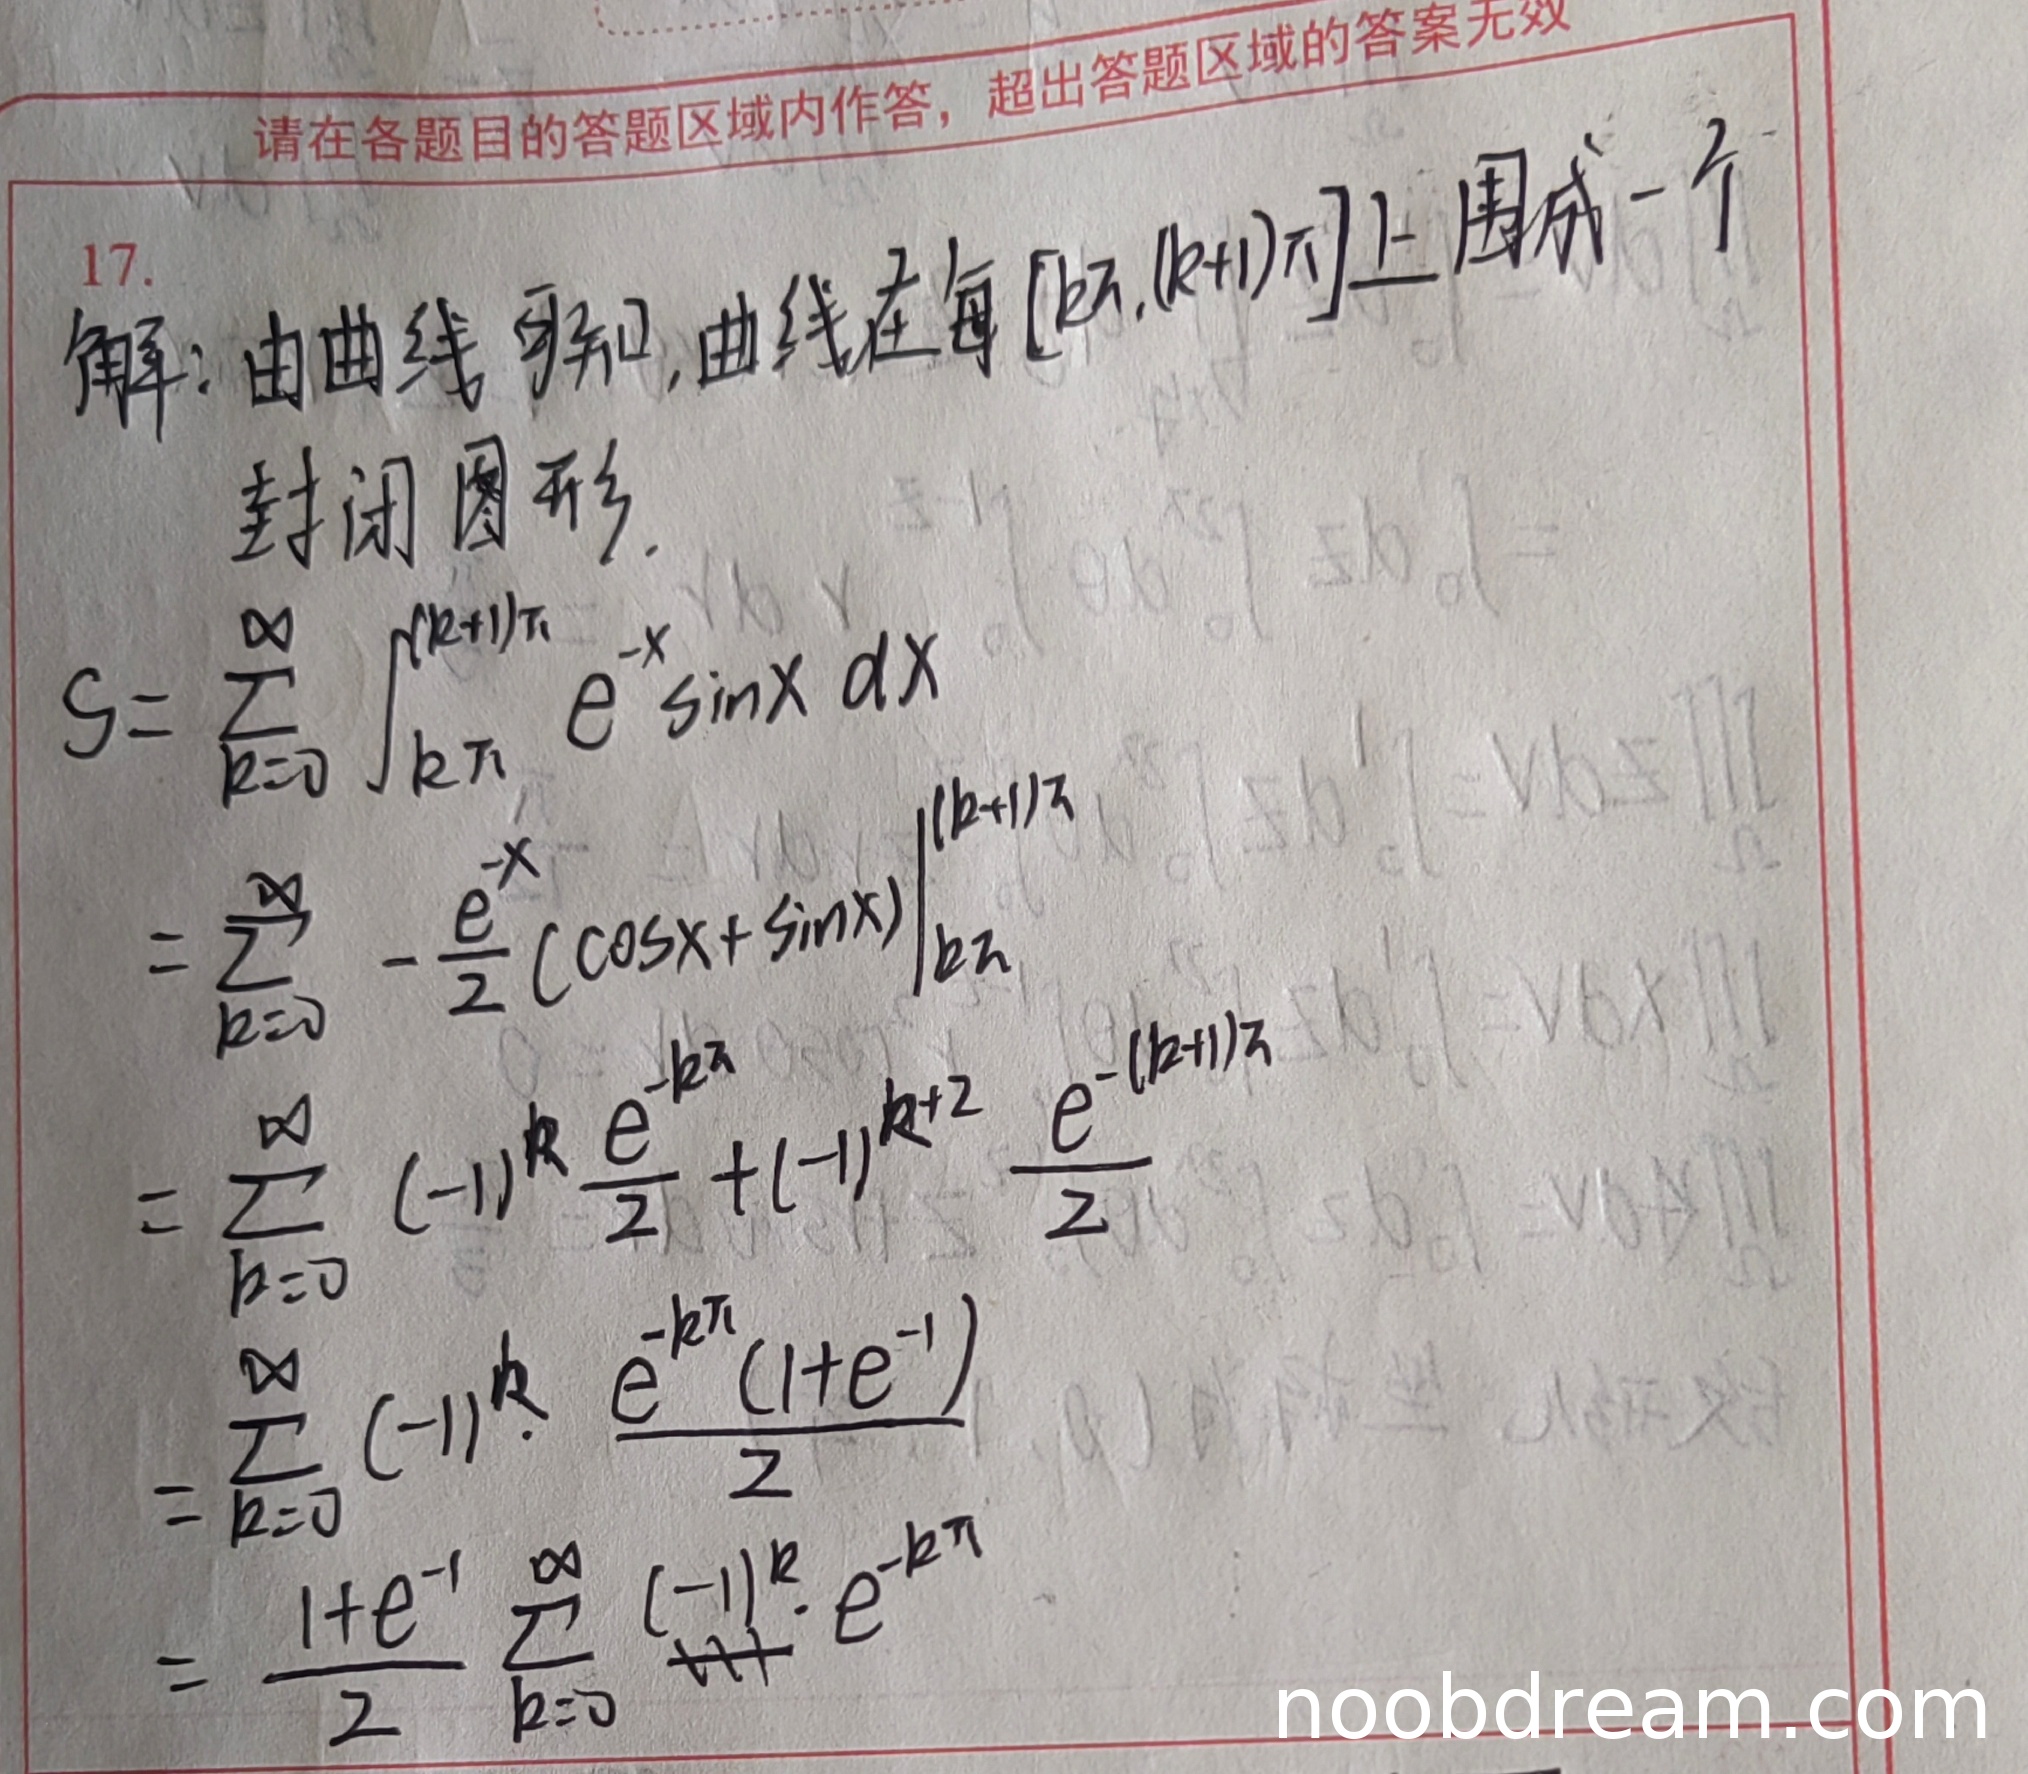 请在各题目的答题区域内作答，超出答题区域的答案无效
17.
解：由曲线可知，曲线在每[kπ,(k+1)π]上围成一个
封闭图形.
S= ∑_{k=0}^{∞} ∫_{kπ}^{(k+1)π} e^{-x} sinx dx
= ∑_{k=0}^{∞} - \frac{e^{-x}}{2} (cosx+sinx) |_{kπ}^{(k+1)π}
= ∑_{k=0}^{∞} (-1)^{k} \frac{e^{-kπ}}{2} + (-1)^{k+2} \frac{e^{-(k+1)π}}{2}
= ∑_{k=0}^{∞} (-1)^{k} · \frac{e^{-kπ}(1+e^{-1})}{2}
= \frac{1+e^{-1}}{2} ∑_{k=0}^{∞} (-1)^{k} · e^{-kπ}
noobdream.com